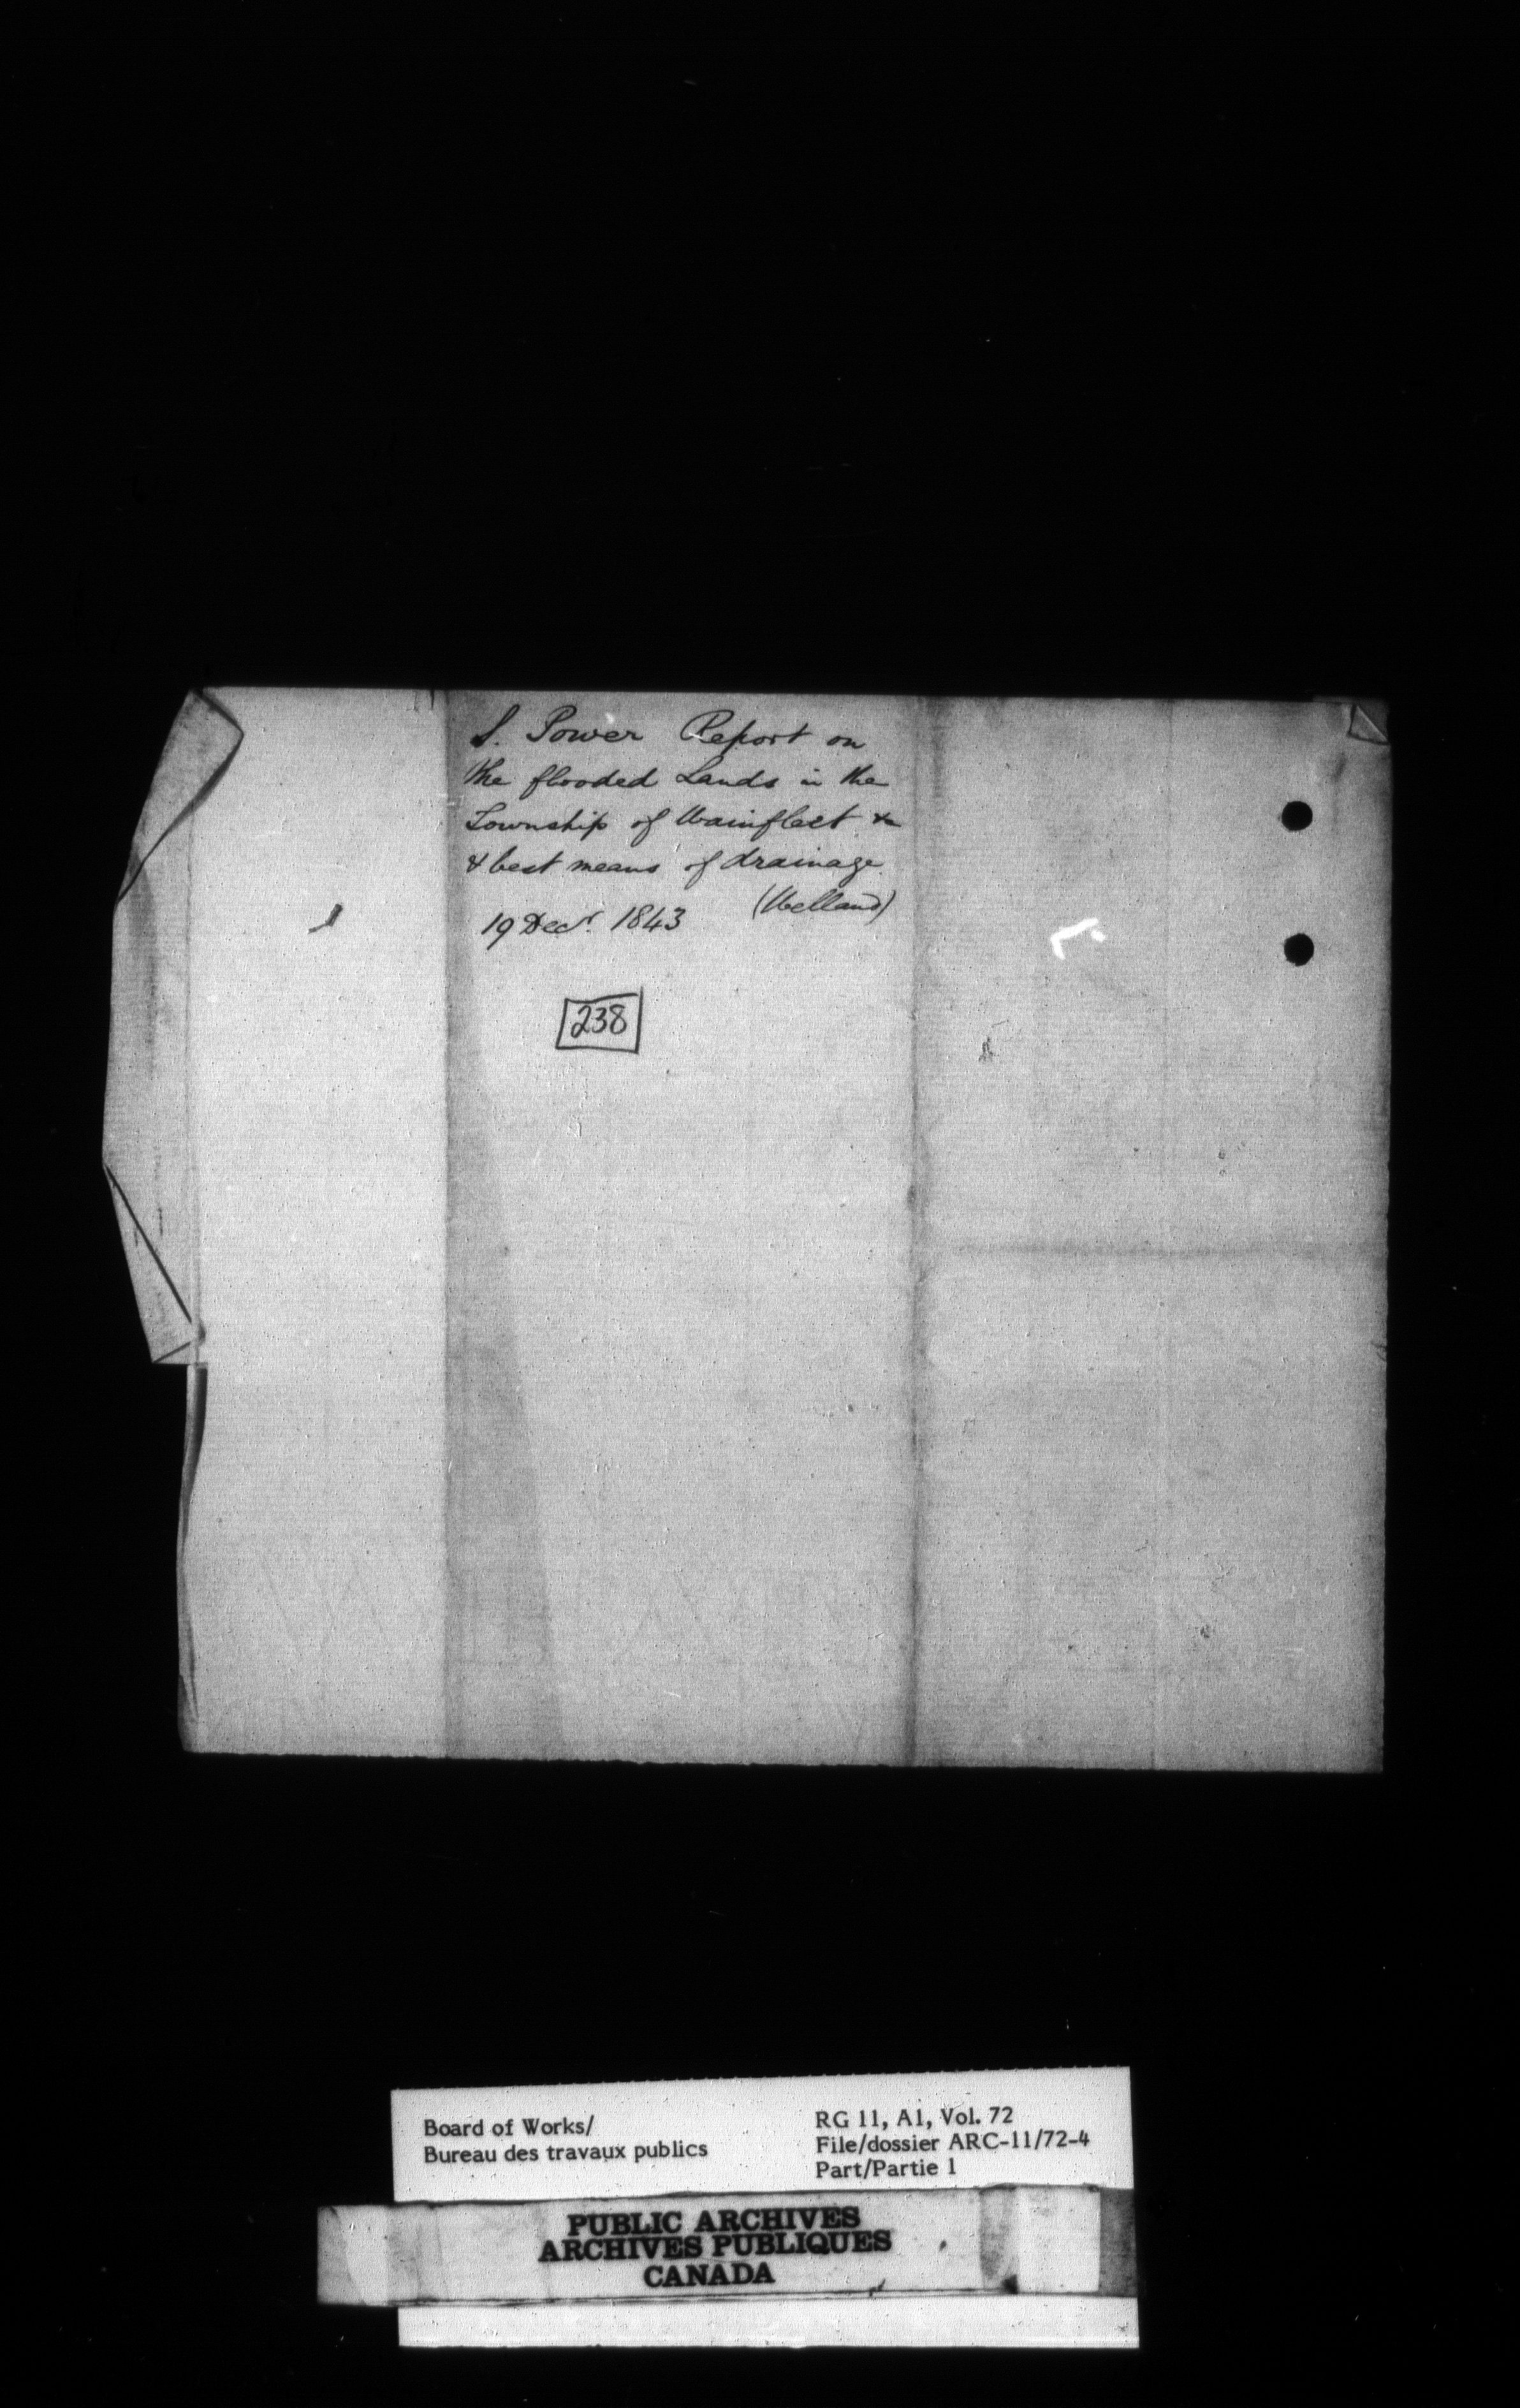 S. Power Report on
the flooded Lands in the
Township of Wainfleet &
& best means of drainage.
(Welland)
19 Decr. 1843
238
Board of Works/
Bureau des travaux publics
RG 11, A1, Vol. 72
File/dossier ARC-11/72-4
Part/Partie 1
PUBLIC ARCHIVES
ARCHIVES PUBLIQUES
CANADA